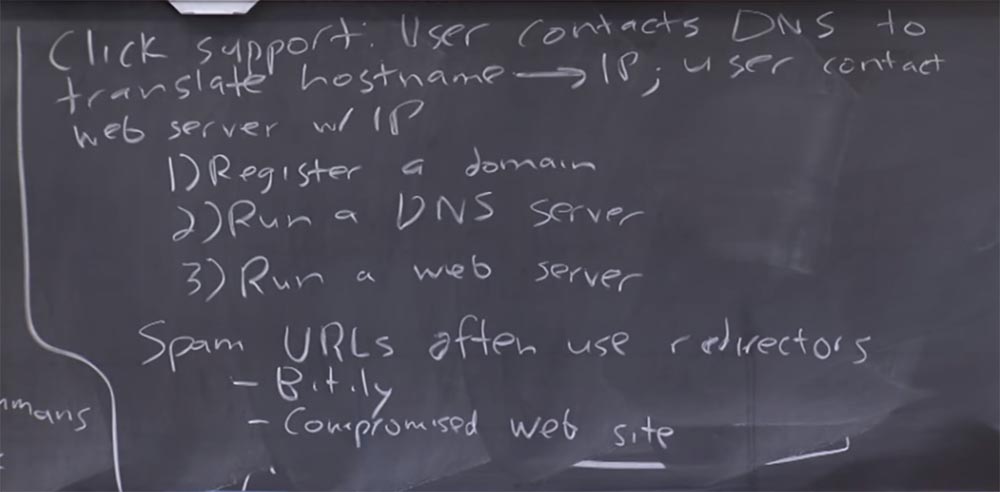 Click support: User contacts DNS to
translate hostname → IP; user contact
web server w/ IP
1) Register a domain
2) Run a DNS server
3) Run a web server
Spam URLs often use redirectors
- Bit.ly
- Compromised web site
mmans